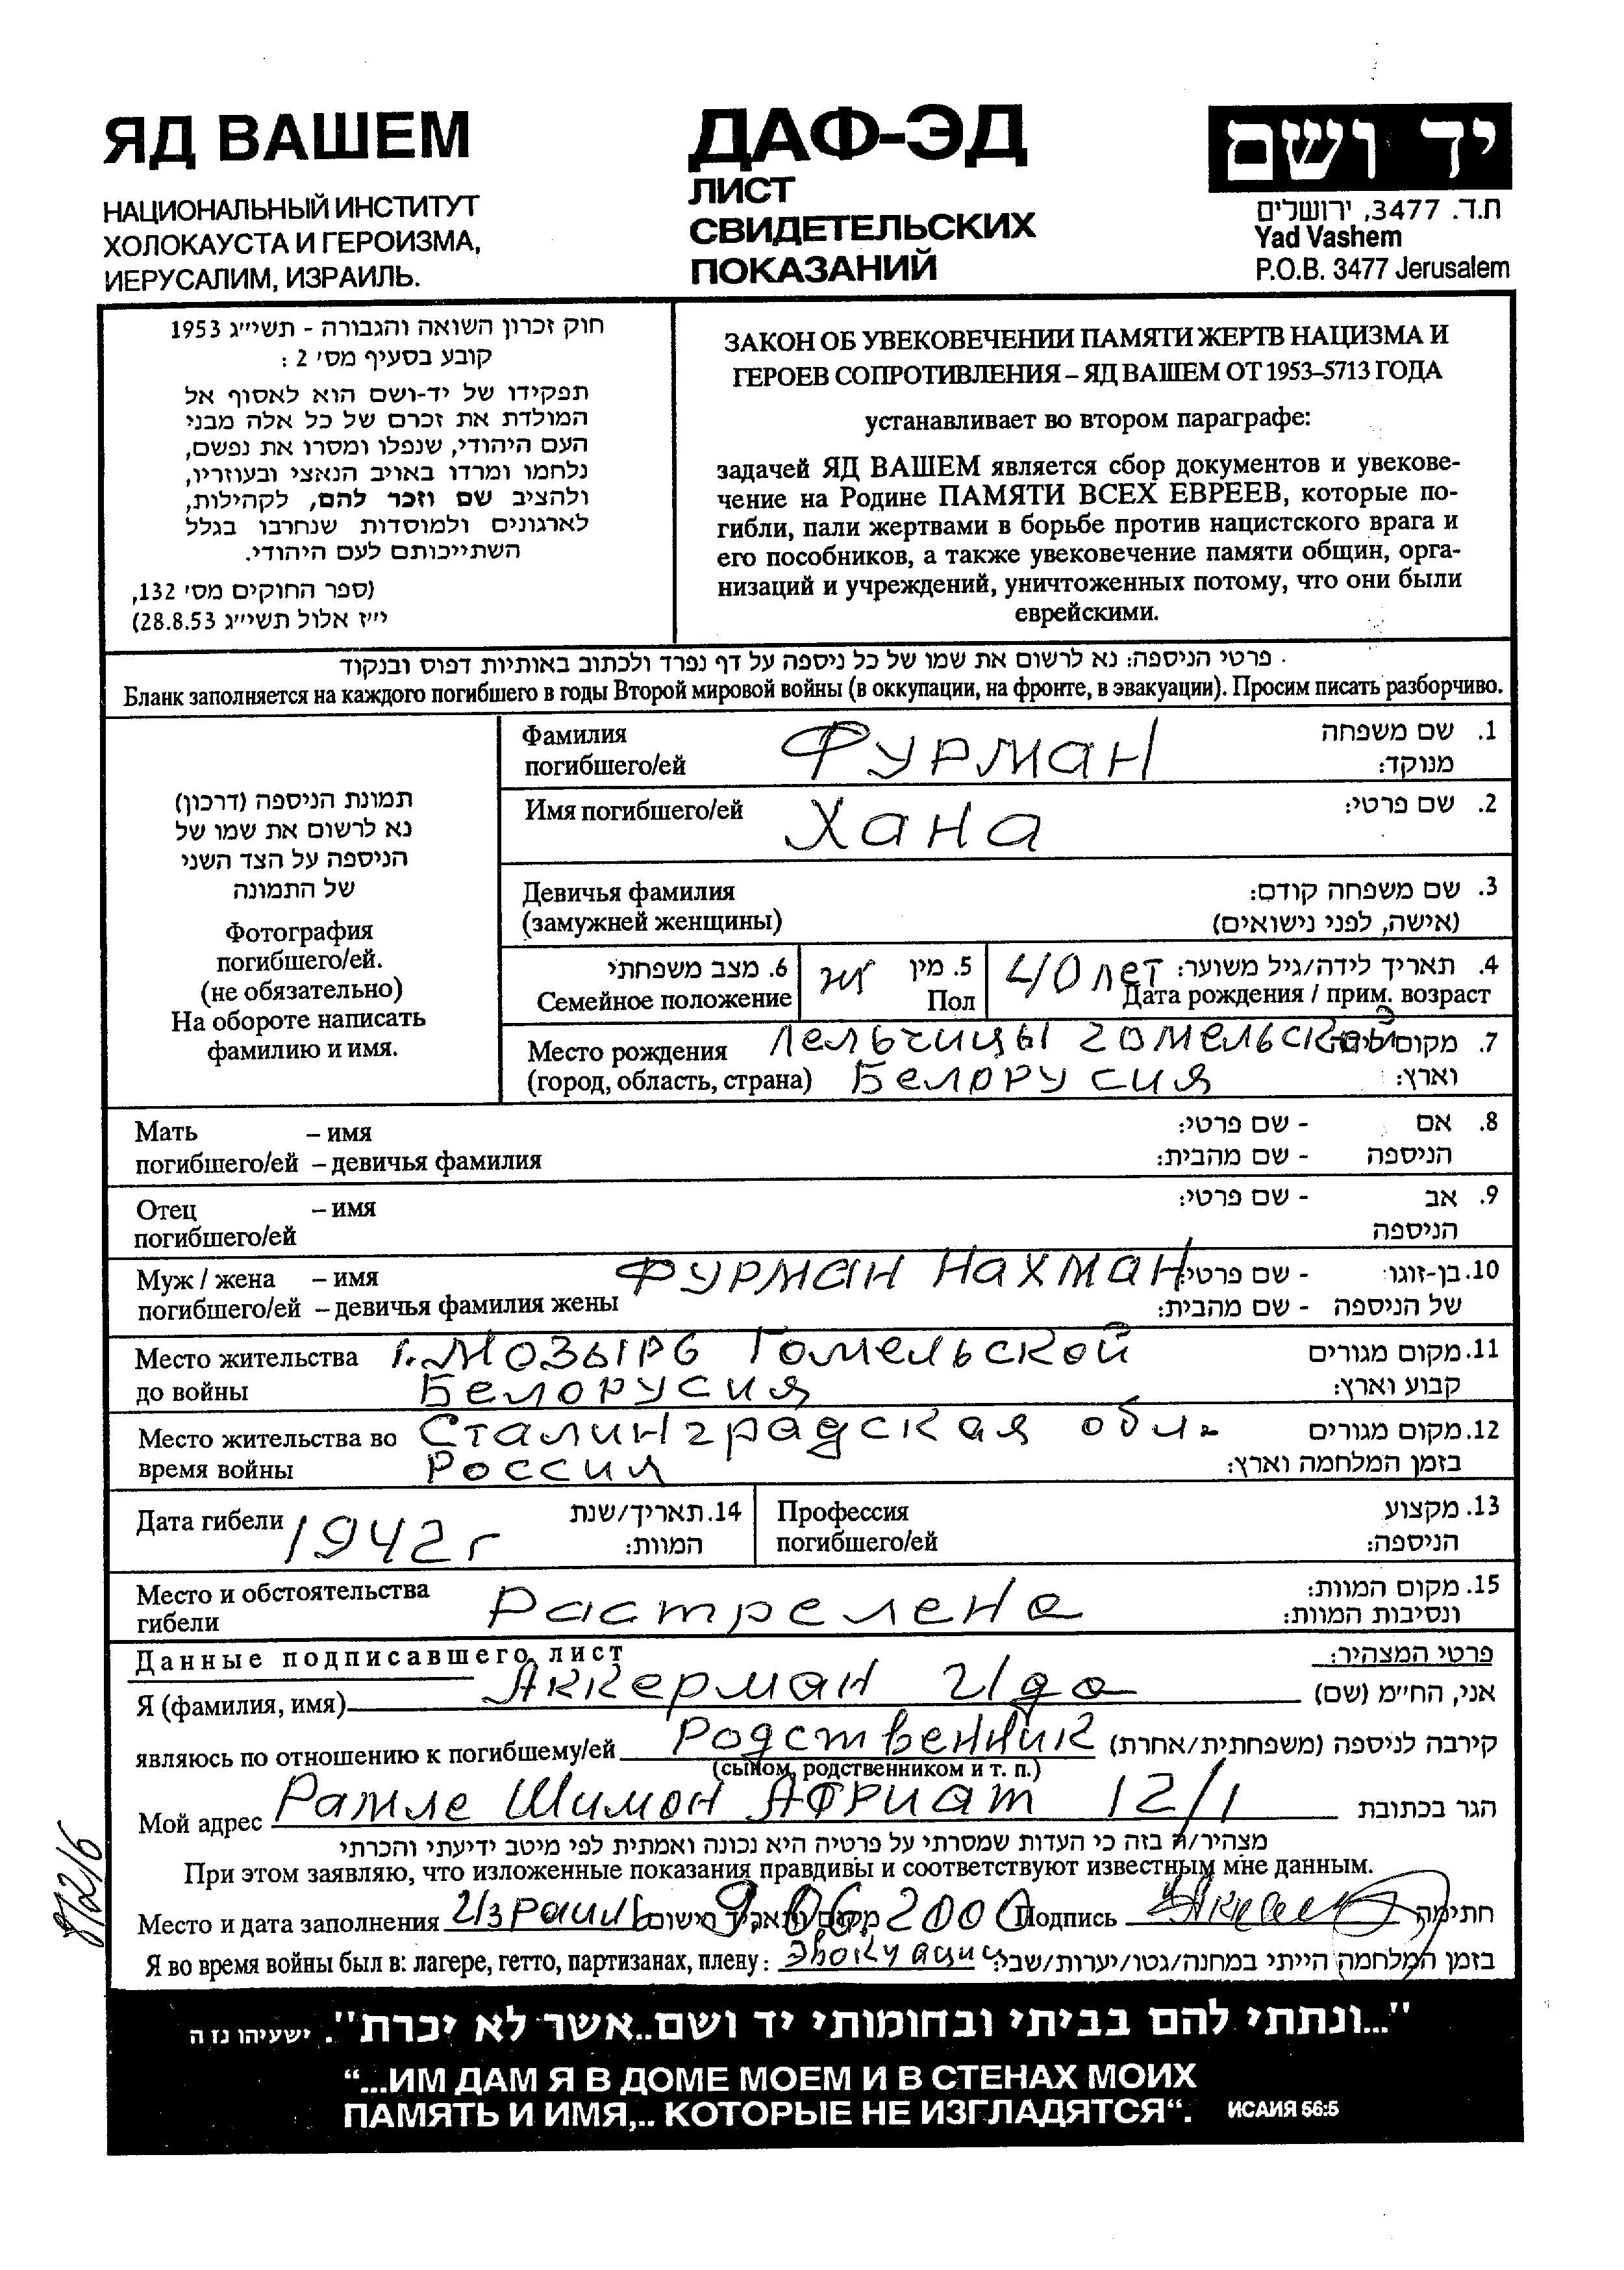 ЯД ВАШЕМ
НАЦИОНАЛЬНЫЙ ИНСТИТУТ
ХОЛОКАУСТА И ГЕРОИЗМА,
ИЕРУСАЛИМ, ИЗРАИЛЬ.
ДАФ-ЭД
ЛИСТ
СВИДЕТЕЛЬСКИХ
ПОКАЗАНИЙ
יד ושם
ת.ד. 3477, ירושלים
Yad Vashem
P.O.B. 3477 Jerusalem
חוק זכרון השואה והגבורה - תשי״ג 1953
קובע בסעיף מס׳ 2 :
תפקידו של יד-ושם הוא לאסוף אל
המולדת את זכרם של כל אלה מבני
העם היהודי, שנפלו ומסרו את נפשם,
נלחמו ומרדו באויב הנאצי ובעוזריו,
ולהציב שם וזכר להם, לקהילות,
לארגונים ולמוסדות שנחרבו בגלל
השתייכותם לעם היהודי.
(ספר החוקים מס׳ 132,
י״ז אלול תשי״ג 28.8.53)
ЗАКОН ОБ УВЕКОВЕЧЕНИИ ПАМЯТИ ЖЕРТВ НАЦИЗМА И
ГЕРОЕВ СОПРОТИВЛЕНИЯ – ЯД ВАШЕМ ОТ 1953–5713 ГОДА
устанавливает во втором параграфе:
задачей ЯД ВАШЕМ является сбор документов и увекове-
чение на Родине ПАМЯТИ ВСЕХ ЕВРЕЕВ, которые по-
гибли, пали жертвами в борьбе против нацистского врага и
его пособников, а также увековечение памяти общин, орга-
низаций и учреждений, уничтоженных потому, что они были
еврейскими.
פרטי הניספה: נא לרשום את שמו של כל ניספה על דף נפרד ולכתוב באותיות דפוס ובנקוד
Бланк заполняется на каждого погибшего в годы Второй мировой войны (в оккупации, на фронте, в эвакуации). Просим писать разборчиво.
תמונת הניספה (דרכון)
נא לרשום את שמו של
הניספה על הצד השני
של התמונה
Фотография
погибшего/ей.
(не обязательно)
На обороте написать
фамилию и имя.
Фамилия Фурман 1. שם משפחה
погибшего/ей מנוקד:
Имя погибшего/ей Хана 2. שם פרטי:
Девичья фамилия 3. שם משפחה קודם:
(замужней женщины) (אישה, לפני נישואים)
6. מצב משפחתי
Семейное положение
5. מין ж
Пол
4. תאריך לידה/גיל משוער: 40 лет
Дата рождения / прим. возраст
Место рождения Лельчицы гомельской 7. מקום לידה
(город, область, страна) Белорусия וארץ:
Мать – имя 8. אם - שם פרטי:
погибшего/ей – девичья фамилия הניספה - שם מהבית:
Отец – имя 9. אב - שם פרטי:
погибшего/ей הניספה
Муж / жена – имя Фурман Нахман 10. בן-זוגו - שם פרטי:
погибшего/ей – девичья фамилия жены של הניספה - שם מהבית:
Место жительства г. Мозырь Гомельской 11. מקום מגורים
до войны Белорусия קבוע וארץ:
Место жительства во Сталинградская обл. 12. מקום מגורים
время войны Россия בזמן המלחמה וארץ:
Дата гибели 1942 г 14. תאריך/שנת
המוות:
Профессия 13. מקצוע
погибшего/ей הניספה:
Место и обстоятельства Растрелена 15. מקום המוות:
гибели ונסיבות המוות:
Данные подписавшего лист פרטי המצהיר:
Я (фамилия, имя) Аккерман Ида אני, הח״מ (שם)
являюсь по отношению к погибшему/ей Родственник קירבה לניספה (משפחתית/אחרת)
(сыном, родственником и т. п.)
Мой адрес Рамле Шимон Африат 12/1 הגר בכתובת
מצהיר/ה בזה כי העדות שמסרתי על פרטיה היא נכונה ואמתית לפי מיטב ידיעתי והכרתי
При этом заявляю, что изложенные показания правдивы и соответствуют известным мне данным.
Место и дата заполнения Израиль 9.06.2000 מקום ותאריך רישום Подпись חתימה
Я во время войны был в: лагере, гетто, партизанах, плену: Эвокуации בזמן המלחמה הייתי במחנה/גטו/יערות/שבי:
"...ונתתי להם בביתי ובחומותי יד ושם..אשר לא יכרת". ישעיהו נז ה
“...ИМ ДАМ Я В ДОМЕ МОЕМ И В СТЕНАХ МОИХ
ПАМЯТЬ И ИМЯ,.. КОТОРЫЕ НЕ ИЗГЛАДЯТСЯ“. ИСАИЯ 56:5